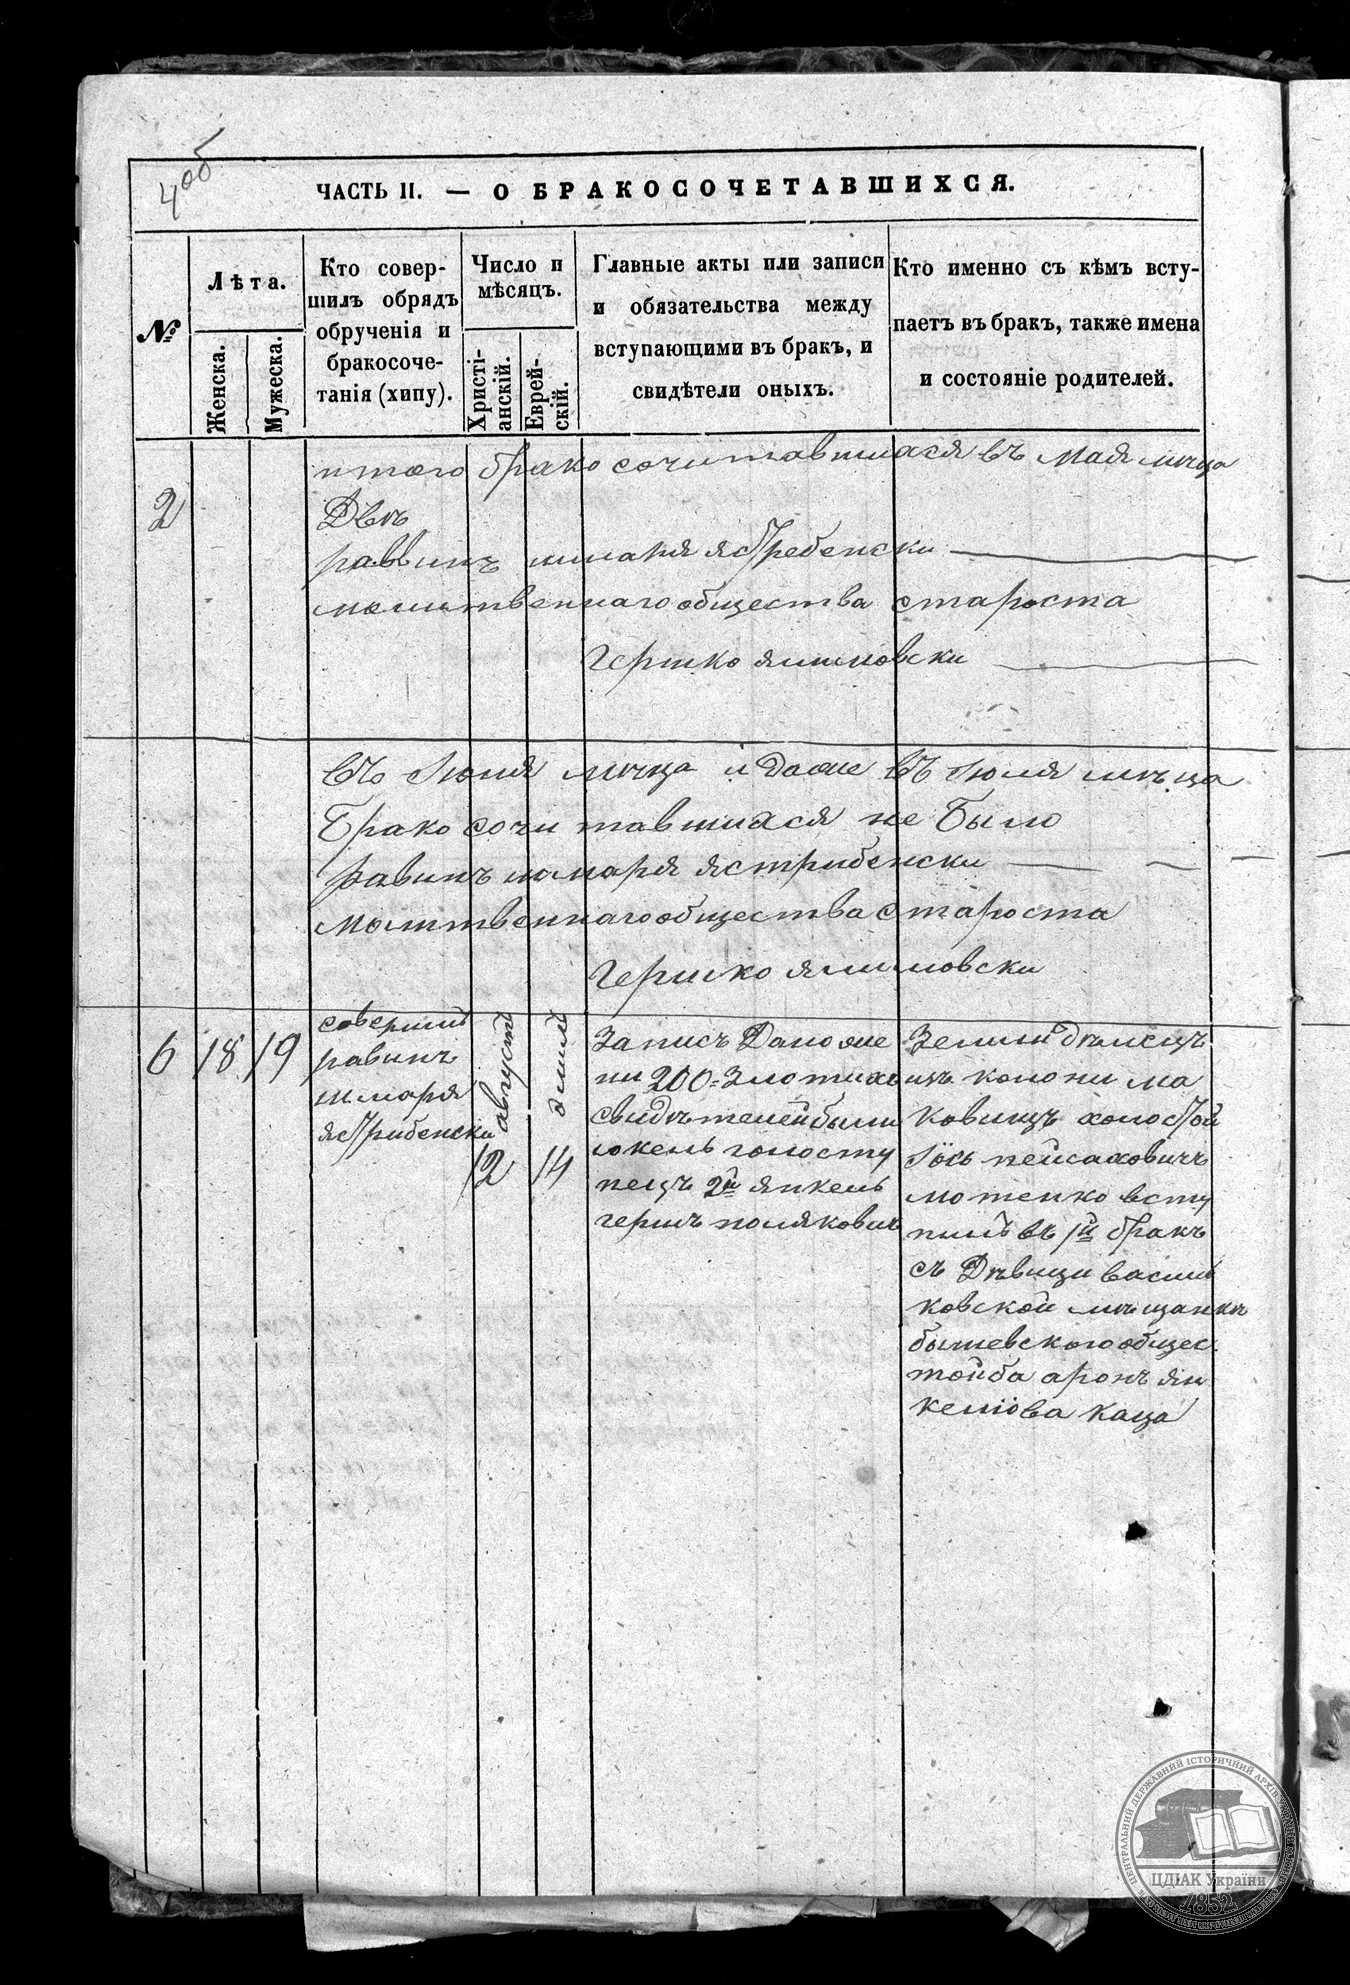 4об
ЧАСТЬ II. — О БРАКОСОЧЕТАВШИХСЯ.
№
Лѣта.
Женска.
Мужеска.
Кто совер-
шилъ обрядъ
обрученія и
бракосоче-
танія (хипу).
Число и
мѣсяцъ.
Христі-
анскій.
Еврей-
скій.
Главные акты или записи
и обязательства между
вступающими въ бракъ, и
свидѣтели оныхъ.
Кто именно съ кѣмъ всту-
паетъ въ бракъ, также имена
и состояніе родителей.
итого бракосочитавшиася въ мая мѣца
2
Двѣ
раввинъ шмаря ястребенски
молитвеннаго общества староста
Гершко ялимовски
въ Июня мѣца и даже въ Июля мѣъца
Брако сочитавшиася не было
равинъ шмаря ястрибенски
молитвеннаго общества староста
Гершко ялимовски
6
18
19
совершилъ
равинъ
шмаря
ястрибенски
августъ
12
элилъ
14
Запись Дано яме
ни 200 = Злотихъ
свидѣтелей были
юкель голосту
пецъ 2й янкель
гершъ поляковичъ
Земли дѣлецъ
изъ колони ма
ковицъ холостой
Iось пейсаховичъ
мотенко всту
пилъ въ 1й бракъ
съ Дѣвици васил
ковской мѣщанкѣ
бышевского общес
тойба аронъ ян
келiова каца
ЦЕНТРАЛЬНИЙ ДЕРЖАВНИЙ ІСТОРИЧНИЙ АРХІВ УКРАЇНИ
ЦДІАК України
1852